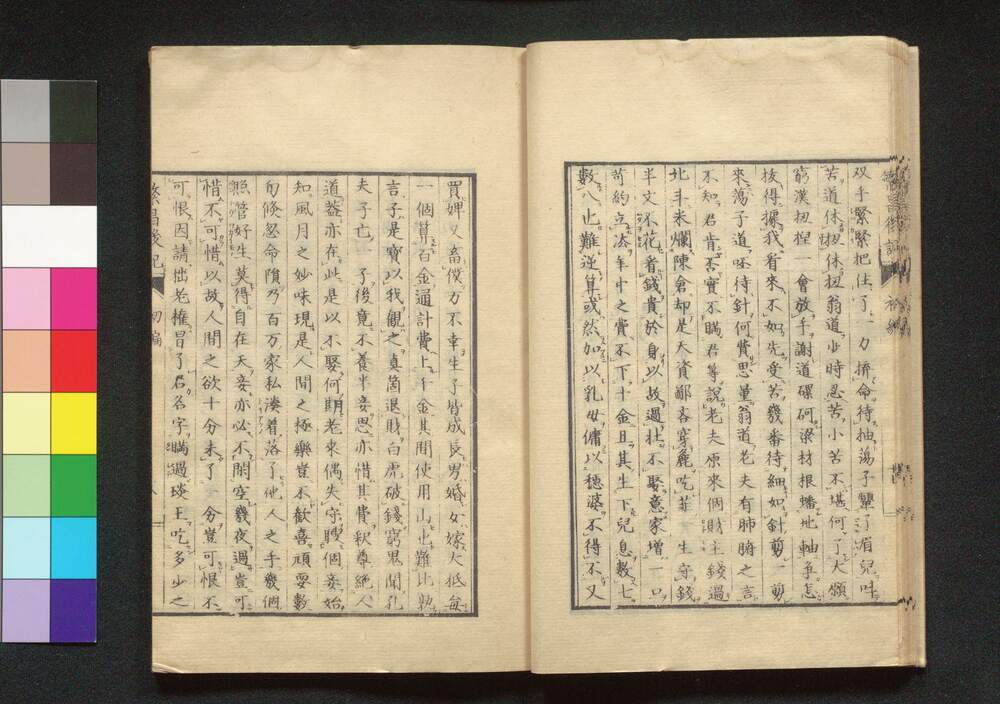 双手緊緊把住了一力拚命待抽蕩子顰了眉兒呌
苦道休扨休扨翁道少時忍苦小苦不堪何了大願
窮漢扨捏一會放手謝道磥砢梁材根蟠地軸爭怎
拔得據我看來不如先受苦幾番待細如針剪一剪
來蕩子道呸待針何費思量翁道老夫有肺腑之言
不知君肯否實不瞞君等說老夫原來個財主錢過
北斗米爛陳倉却是天資鄙吝穿麁吃菲一生守錢
半文不花看錢貴於身以故過壯不娶意家增一口
苟約立法年中之費不下十金且其生下兒息數七
數八止難逆算或然加以乳母傭以穗婆不得不又
買婢又畜僕万不幸生子皆成長男婚女嫁大抵每
一個算百金通計費上千金其間使用山止難比孰
言子是寶以我觀之真箇退財白虎破錢窮鬼聞孔
夫子亡一子後竟不養半妾思亦惜其費秋尊絕人
道蓋亦在此是以不娶何期老來偶失守聘個妾始
知風月之妙味現是人間之極樂豈不歡喜頑耍數
旬倏忽命隕乃百万家私湊着落了他人之手幾個
照管好生莫得自在天妾亦必不閒空幾夜過豈可
惜不可惜以故人間之欲十分未了一分豈可恨不
可恨因請拙老權冒了君名字瞞過琰王吃多少之
繁昌後記 初編